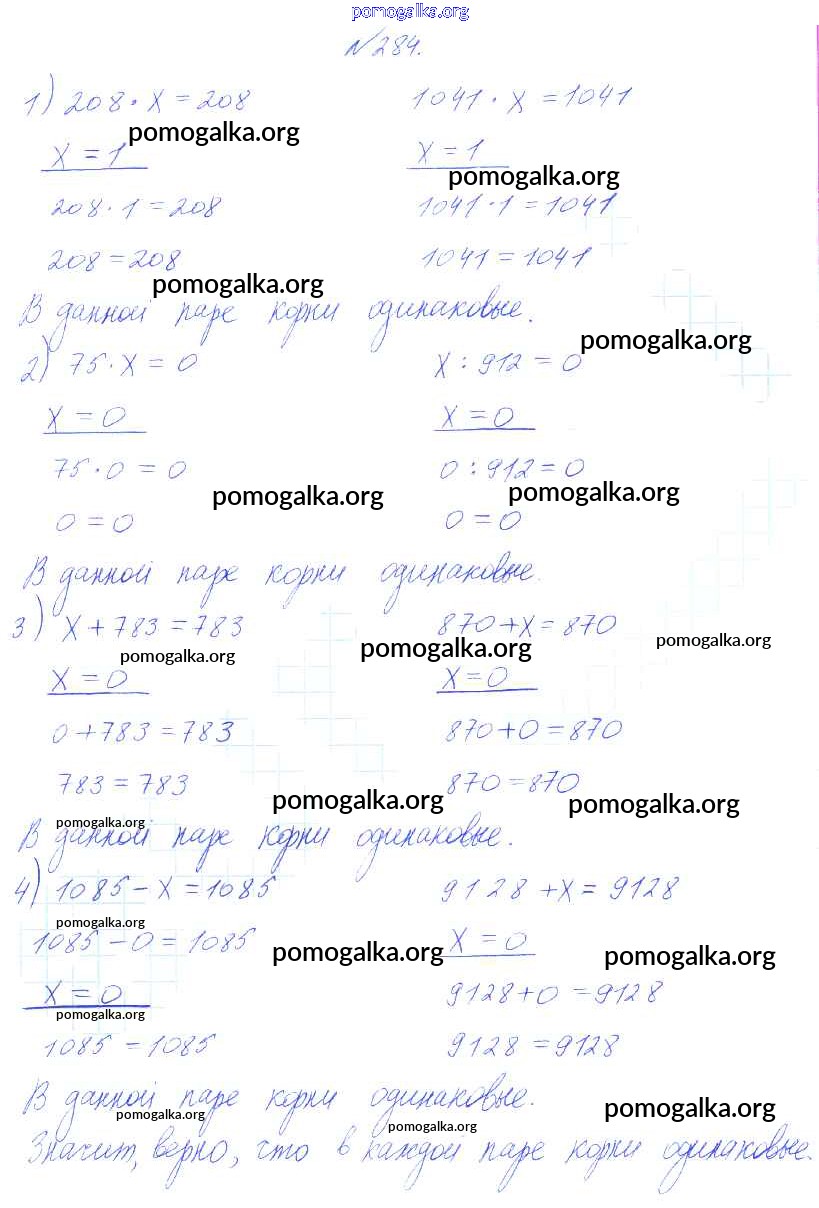 pomogalka.org
№284.
1) 208 · x = 208 1041 · x = 1041
pomogalka.org
x = 1 x = 1
pomogalka.org
208 · 1 = 208 1041 · 1 = 1041
208 = 208 1041 = 1041
pomogalka.org
В данной паре корни одинаковые.
pomogalka.org
2) 75 · x = 0 x : 912 = 0
x = 0 x = 0
75 · 0 = 0 0 : 912 = 0
pomogalka.org pomogalka.org
0 = 0 0 = 0
В данной паре корни одинаковые.
3) x + 783 = 783 870 + x = 870
pomogalka.org pomogalka.org pomogalka.org
x = 0 x = 0
0 + 783 = 783 870 + 0 = 870
783 = 783 870 = 870
pomogalka.org pomogalka.org
pomogalka.org
В данной паре корни одинаковые.
4) 1085 - x = 1085 9128 + x = 9128
pomogalka.org
1085 - 0 = 1085 x = 0
pomogalka.org pomogalka.org
x = 0 9128 + 0 = 9128
pomogalka.org
1085 = 1085 9128 = 9128
В данной паре корни одинаковые.
pomogalka.org pomogalka.org pomogalka.org
Значит, верно, что в каждой паре корни одинаковые.